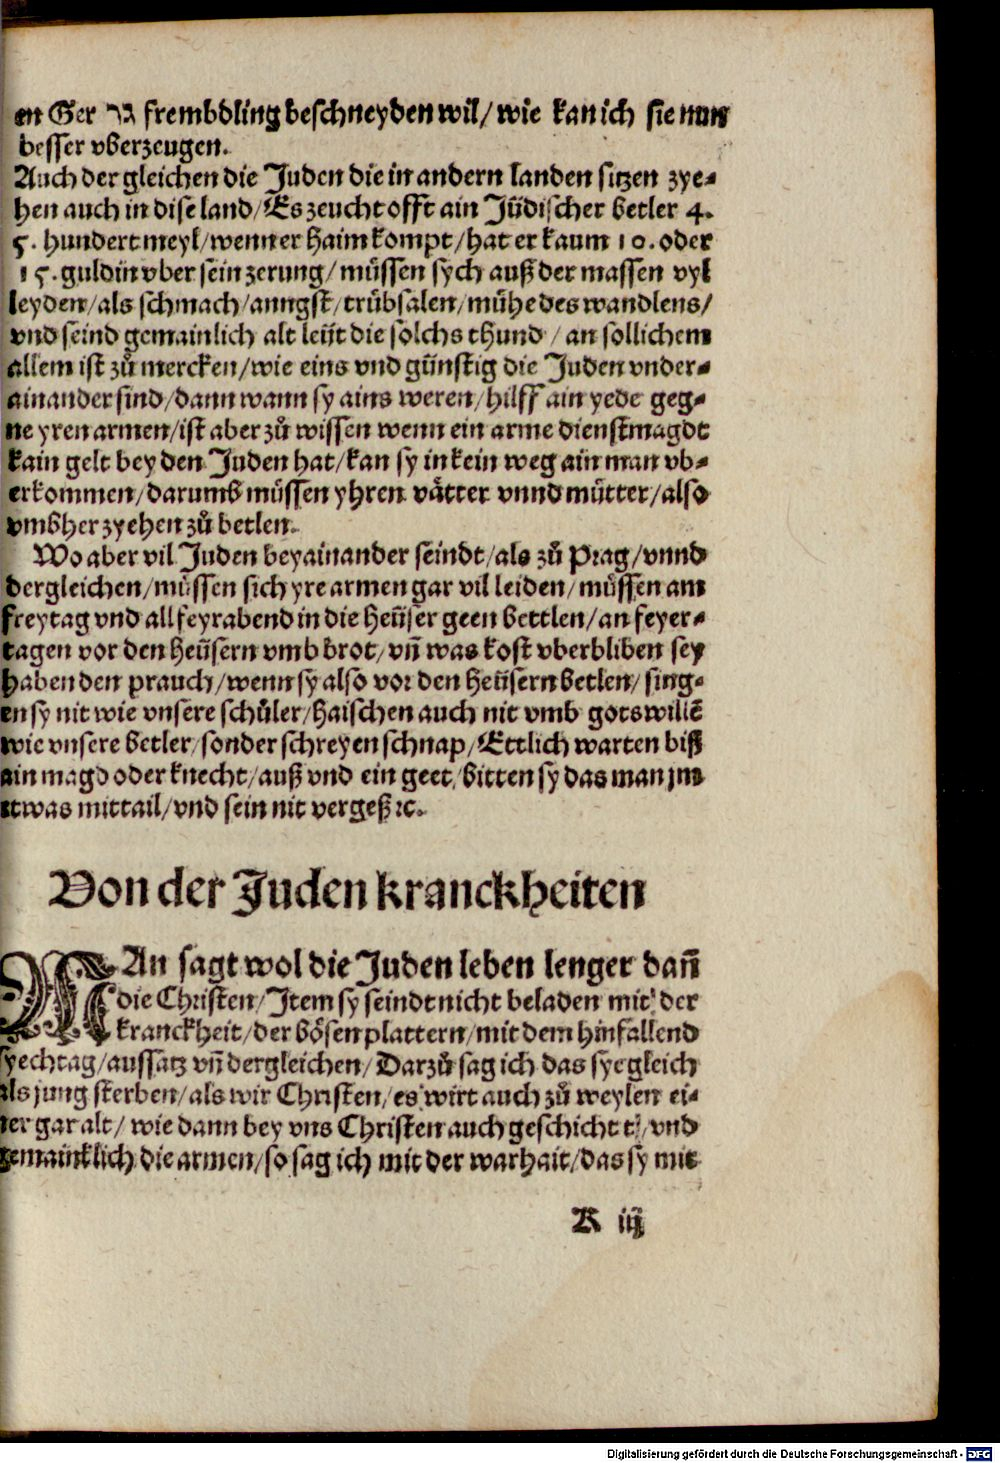 en Ger גר frembdling beschneyden wil/ wie kan ich sie nun
besser vberzeugen.
Auch der gleichen die Juden die in andern landen sitzen zye-
hen auch in dise land/ Es zeucht offt ain Jüdischer betler 4.
5. hundert meyl/ wenn er haim kompt/ hat er kaum 10. oder
15. guldin vber sein zerung/ müssen sych auß der massen vyl
leyden/ als schmach/ anngst/ trübsalen/ mühe des wandlens/
vnd seind gemainlich alt leüt die solchs thund/ an sollichem
allem ist zů mercken/ wie eins vnd günstig die Juden vnder-
ainander sind/ dann wann sy ains weren/ hilff ain yede geg-
ne yren armen/ ist aber zů wissen wenn ein arme dienstmagdt
kain gelt bey den Juden hat/ kan sy in kein weg ain man vb-
erkommen/ darumb müssen yhren vätter vnnd mütter/ also
vmbher zyehen zů betlen.
Wo aber vil Juden beyainander seindt/ als zů Prag/ vnnd
dergleichen/ müssen sich yre armen gar vil leiden/ müssen am
freytag vnd all feyrabend in die heüser geen bettlen/ an feyer-
tagen vor den heüsern vmb brot/ vñ was kost vberbliben sey
haben den prauch/ wenn sy also vor den heüsern betlen/ sing-
en sy nit wie vnsere schüler/ haischen auch nit vmb gots willẽ
wie vnsere betler/ sonder schreyen schnap/ Ettlich warten biß
ain magd oder knecht/ auß vnd ein geet/ bitten sy das man jm
etwas mittail/ vnd sein nit vergeß ꝛc.
Von der Juden kranckheiten
MAn sagt wol die Juden leben lenger dañ
die Christen/ Item sy seindt nicht beladen mit der
kranckheit/ der bösen plattern/ mit dem hinfallend
syechtag/ aussatz vñ dergleichen/ Darzů sag ich das sye gleich
als jung sterben/ als wir Christen/ es wirt auch zů weylen ei-
ner gar alt/ wie dann bey vns Christen auch geschicht/ vnd
gemainklich die armen/ so sag ich mit der warhait/ das sy mit
K iij
Digitalisierung gefördert durch die Deutsche Forschungsgemeinschaft - DFG